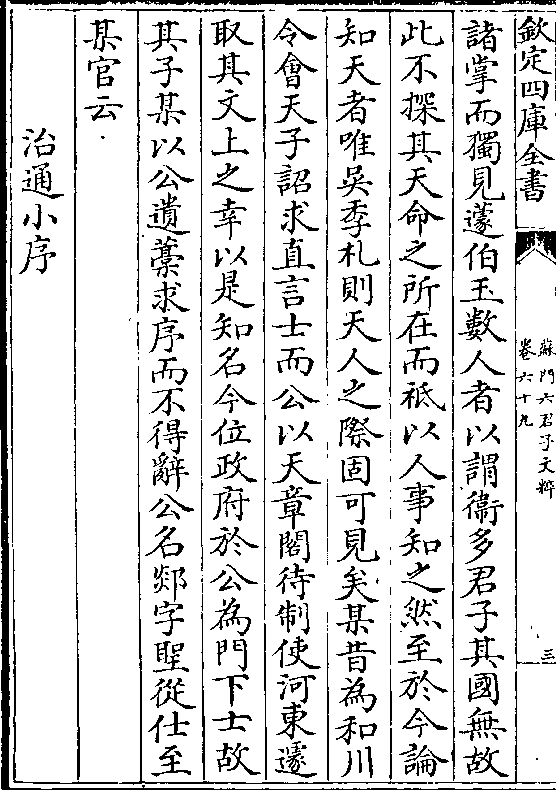 欽定四庫全書
蘇門六君子文粹
卷六十九
三
諸掌而獨見蘧伯玉數人者以謂衛多君子其國無故
此不探其天命之所在而祗以人事知之然至於今論
知天者唯吳季札則天人之際固可見矣某昔為和川
令會天子詔求直言士而公以天章閣待制使河東遽
取其文上之幸以是知名今位政府於公為門下士故
其子某以公遺藁求序而不得辭公名郯字聖從仕至
某官云
治通小序